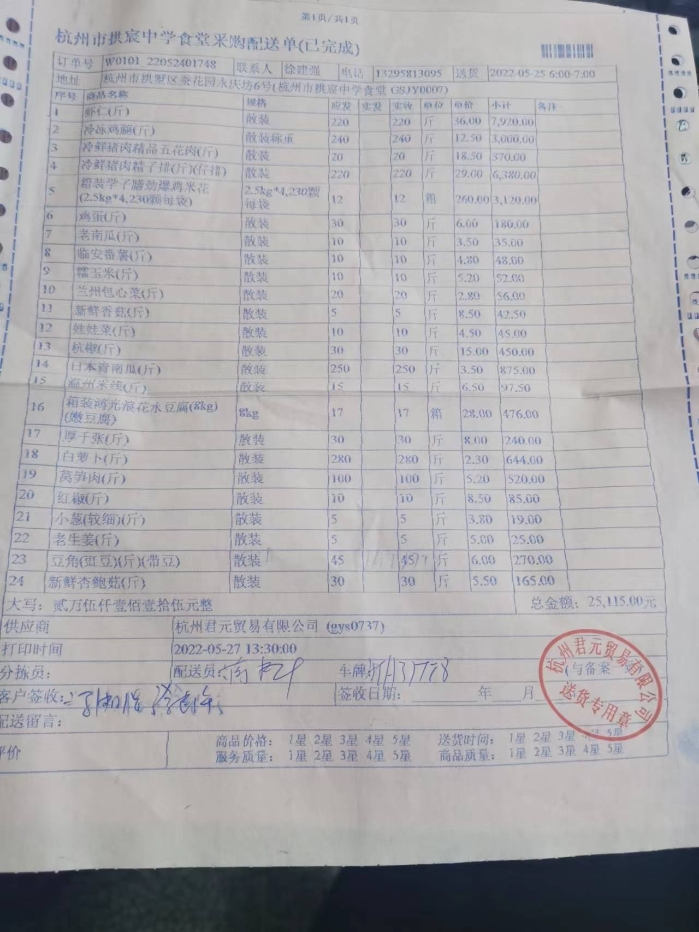 第1页/共1页
杭州市拱宸中学食堂采购配送单(已完成)
订单号 W0101 22052401748 联系人 徐建强 电话 13295813095 送货 2022-05-25 6:00-7:00
地址 杭州市拱墅区茶花园永庆坊6号(杭州市拱宸中学食堂 GSJY0007)
序号 商品名称 规格 应发 实发 实收 单位 单价 小计 备注
1 虾仁(斤) 散装 220 220 斤 36.00 7,920.00
2 冷冻鸡腿(斤) 散装称重 240 240 斤 12.50 3,000.00
3 冷鲜猪肉精品五花肉(斤) 散装 20 20 斤 18.50 370.00
4 冷鲜猪肉精子排(斤)(仔排) 散装 220 220 斤 29.00 6,380.00
5 箱装学子膳劲爆鸡米花(2.5kg*4,230颗每袋) 2.5kg*4,230颗每袋 12 12 箱 260.00 3,120.00
6 鸡蛋(斤) 散装 30 30 斤 6.00 180.00
7 老南瓜(斤) 散装 10 10 斤 3.50 35.00
8 临安番薯(斤) 散装 10 10 斤 4.80 48.00
9 糯玉米(斤) 散装 10 10 斤 5.20 52.00
10 兰州包心菜(斤) 散装 20 20 斤 2.80 56.00
11 新鲜香菇(斤) 散装 5 5 斤 8.50 42.50
12 娃娃菜(斤) 散装 10 10 斤 4.50 45.00
13 杭椒(斤) 散装 30 30 斤 15.00 450.00
14 日本青南瓜(斤) 散装 250 250 斤 3.50 875.00
15 温州米线(斤) 散装 15 15 斤 6.50 97.50
16 箱装鸿光浪花水豆腐(8kg)(嫩豆腐) 8kg 17 17 箱 28.00 476.00
17 厚千张(斤) 散装 30 30 斤 8.00 240.00
18 白萝卜(斤) 散装 280 280 斤 2.30 644.00
19 莴笋肉(斤) 散装 100 100 斤 5.20 520.00
20 红椒(斤) 散装 10 10 斤 8.50 85.00
21 小葱(较细)(斤) 散装 5 5 斤 3.80 19.00
22 老生姜(斤) 散装 5 5 斤 5.00 25.00
23 豆角(豇豆)(斤)(带豆) 散装 45 45 斤 6.00 270.00
24 新鲜杏鲍菇(斤) 散装 30 30 斤 5.50 165.00
大写：贰万伍仟壹佰壹拾伍元整 总金额：25,115.00元
供应商 杭州君元贸易有限公司 (gys0737)
打印时间 2022-05-27 13:30:00
分拣员： 配送员 车牌 (与备案
客户签收： 签收日期： 年 月
配送留言：
评价 商品价格： 1星 2星 3星 4星 5星 送货时间： 1星 2星 3星 4星 5星
服务质量： 1星 2星 3星 4星 5星 商品质量： 1星 2星 3星 4星 5星
杭州君元贸易有限公司
送货专用章